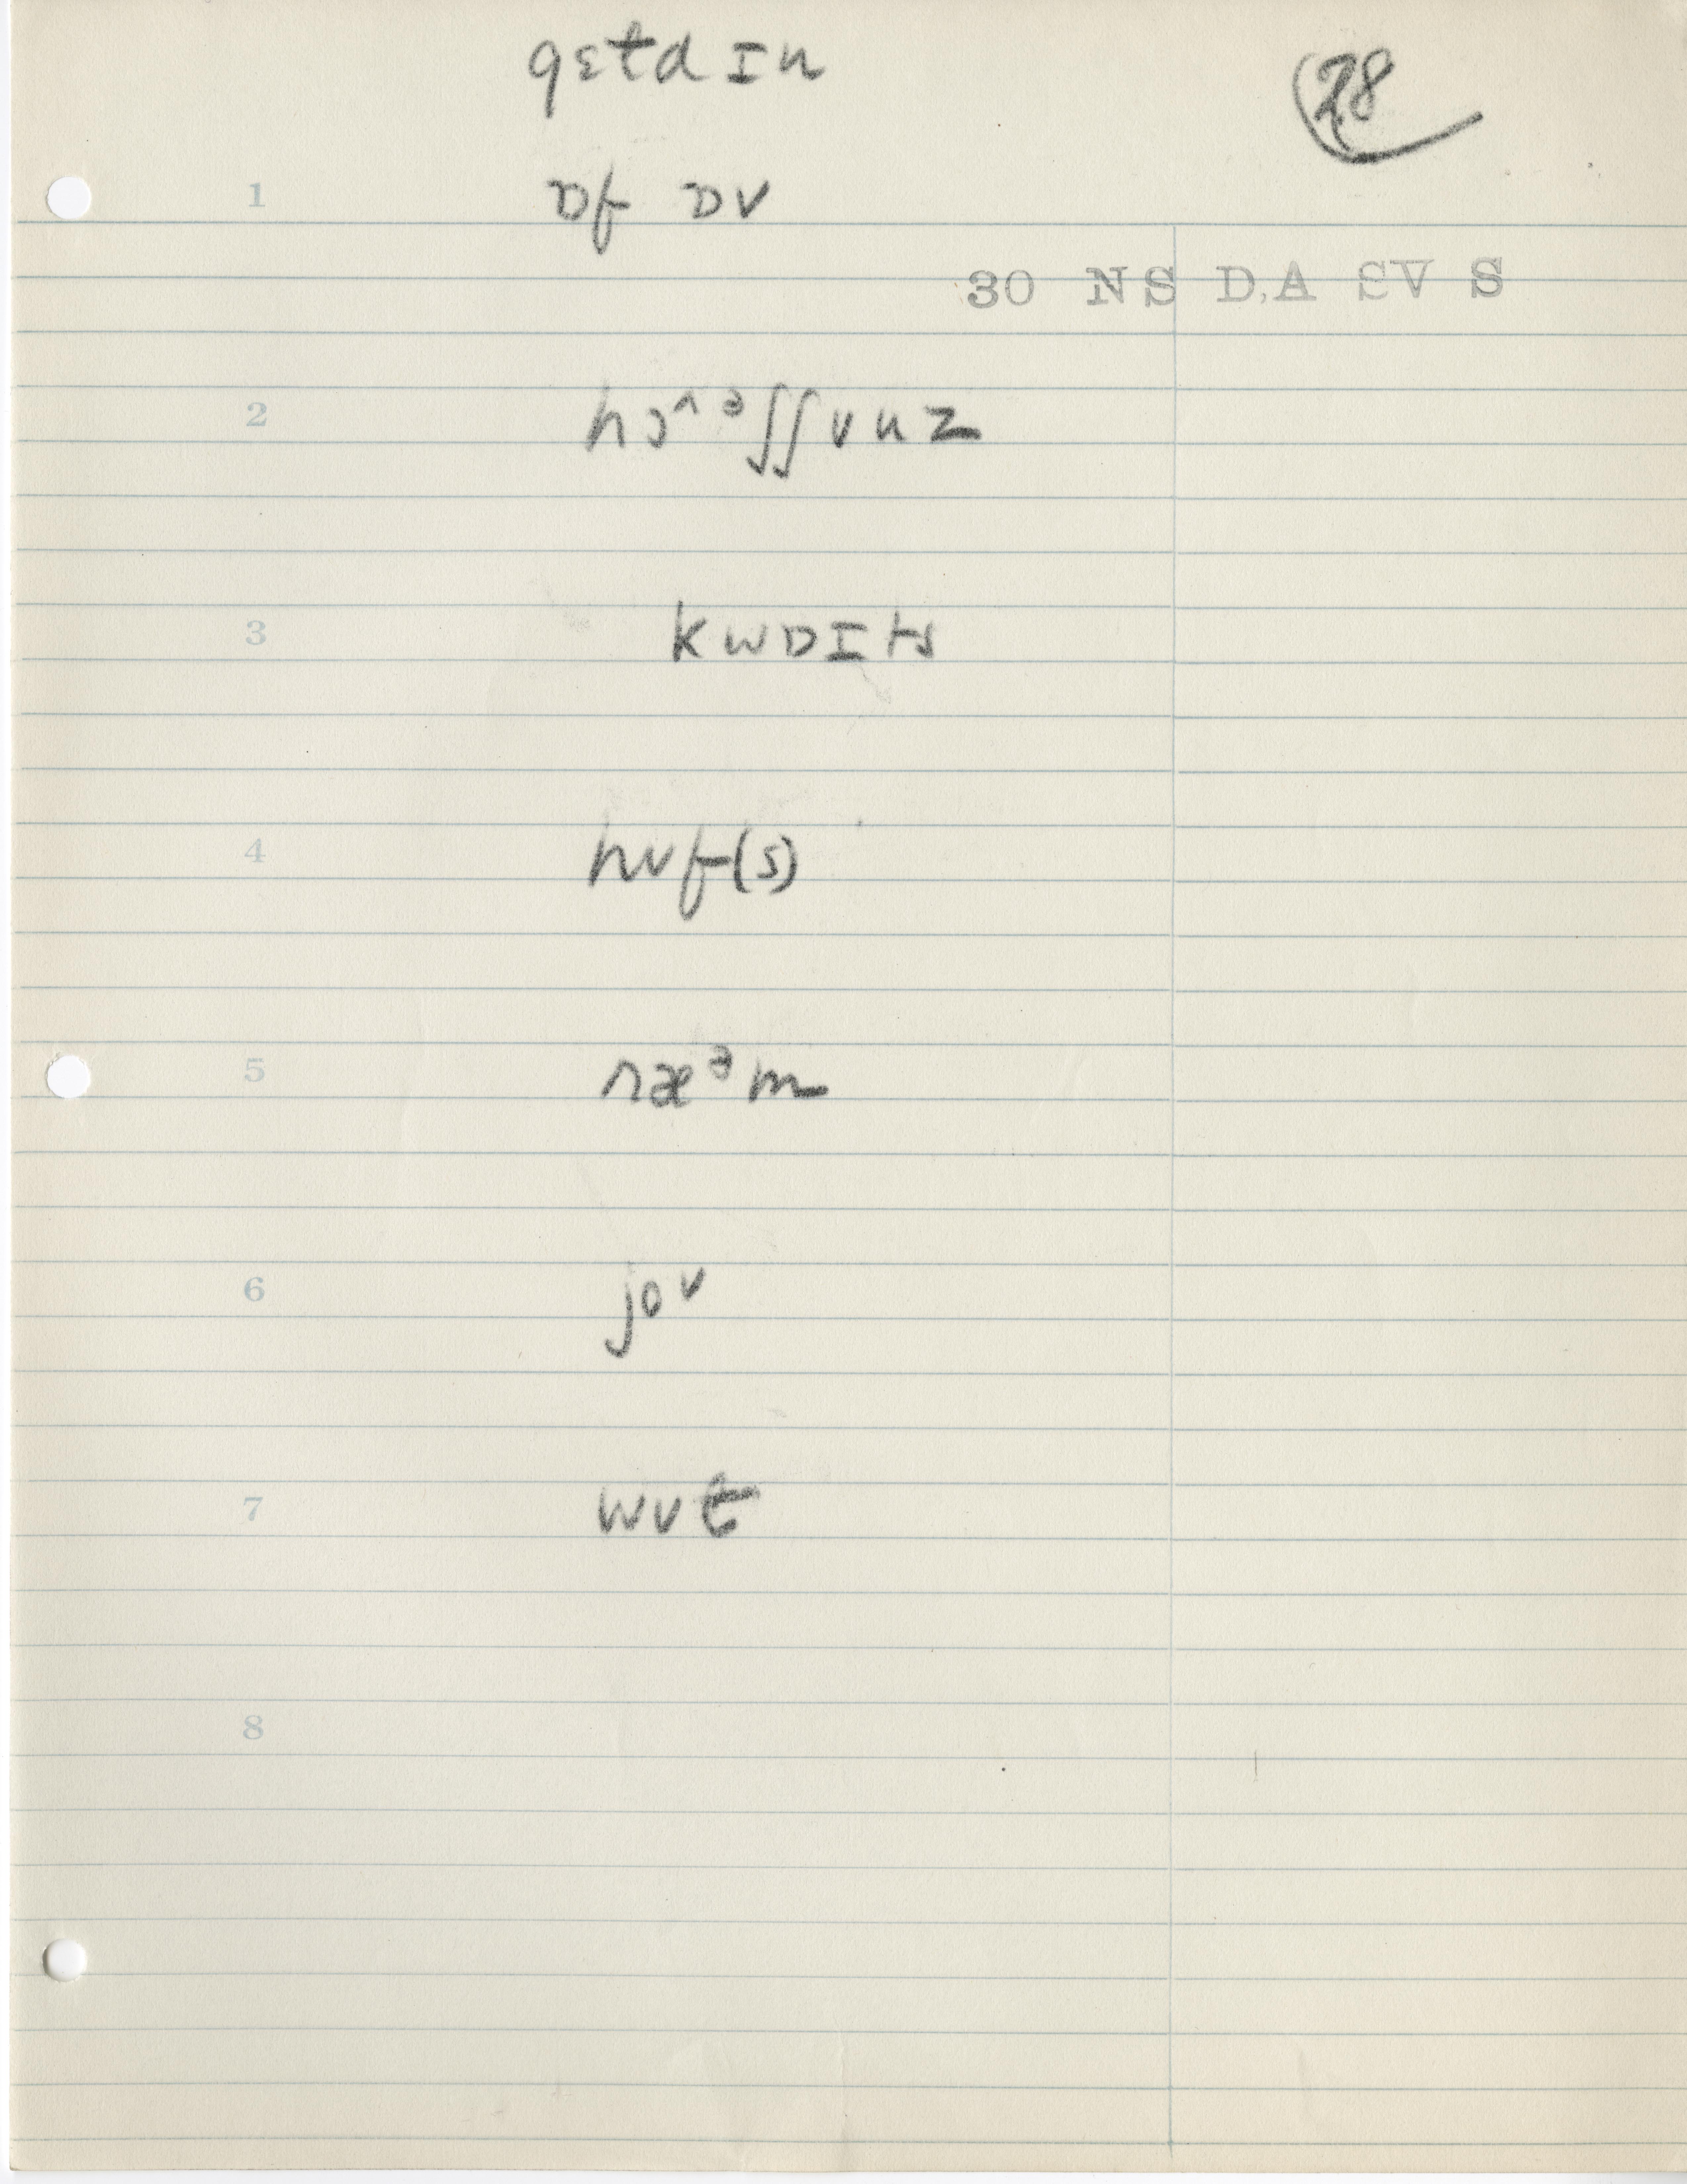 gɛtdɪn
28
1 ɒf ɒv
30 NS D.A SV S
2 hɔ^ᵊʃʃʊuz
3 kwɒɪts
4 hʊf(s)
5 ræᵊm
6 joᵛ
7 wʊt
8